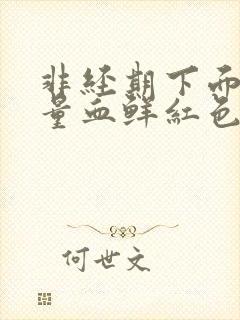 非经期下面
量血鲜红色
何世文